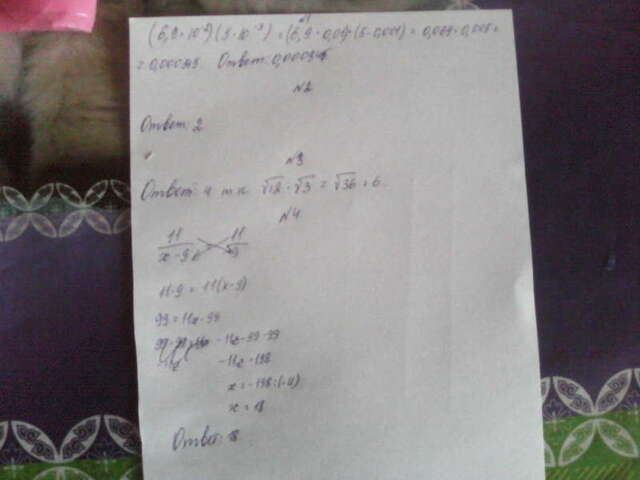 (6,9 · 10⁻²)(5 · 10⁻³) = (6,9 · 0,01)·(5 · 0,001) = 0,069 · 0,005 =
= 0,000345 Ответ: 0,000345
№2
Ответ: 2
№3
Ответ: 4 т к √12 · √3 = √36 = 6.
№4
11 11
x - 9 9
11·9 = 11(x-9)
99 = 11x - 99
-11x = -99 - 99
-11x = -198
x = -198 : (-11)
x = 18
Ответ: 18